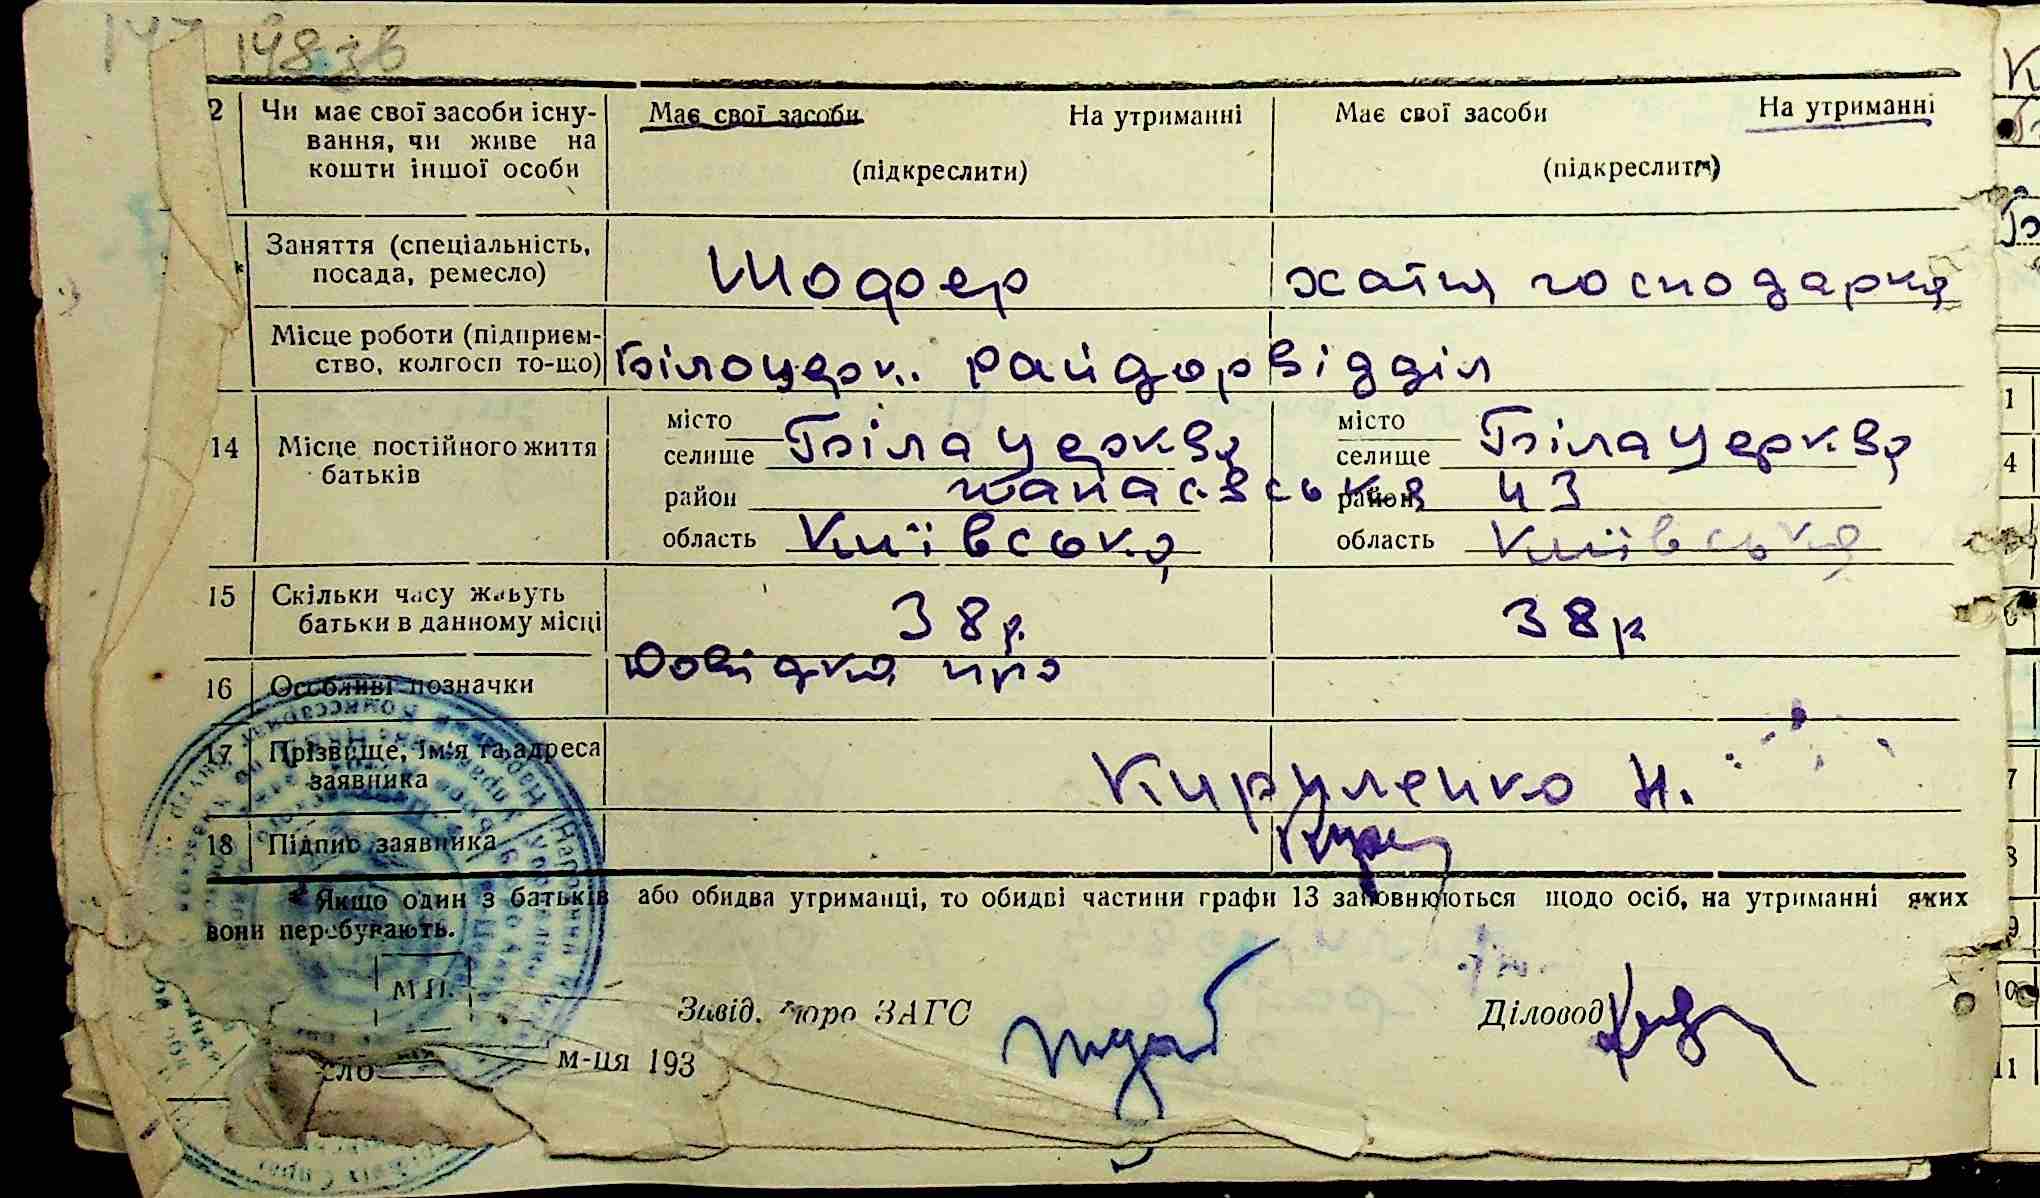 147 148 зв
2 Чи має свої засоби існу- Має свої засоби На утриманні Має свої засоби На утриманні
вання, чи живе на
кошти іншої особи (підкреслити) (підкреслити)
Заняття (спеціальність, Шофер хатня господарка
посада, ремесло)
Місце роботи (підприєм- Білоцерк. райдорвідділ
ство, колгосп то-що)
14 Місце постійного життя місто Біла церква місто Біла церква
батьків селище селище
район район 43
область Київська область Київська
15 Скільки часу живуть 38 р. 38 р
батьки в данному місці
16 Особливі позначки Довідка про
17 Прізвище, ім'я та адреса Кириленко Н.
заявника
18 Підпис заявника
Якщо один з батьків або обидва утриманці, то обидві частини графи 13 заповнюються щодо осіб, на утриманні яких
вони перебувають.
М П.
Завід. бюро ЗАГС Діловод
сло м-ця 193